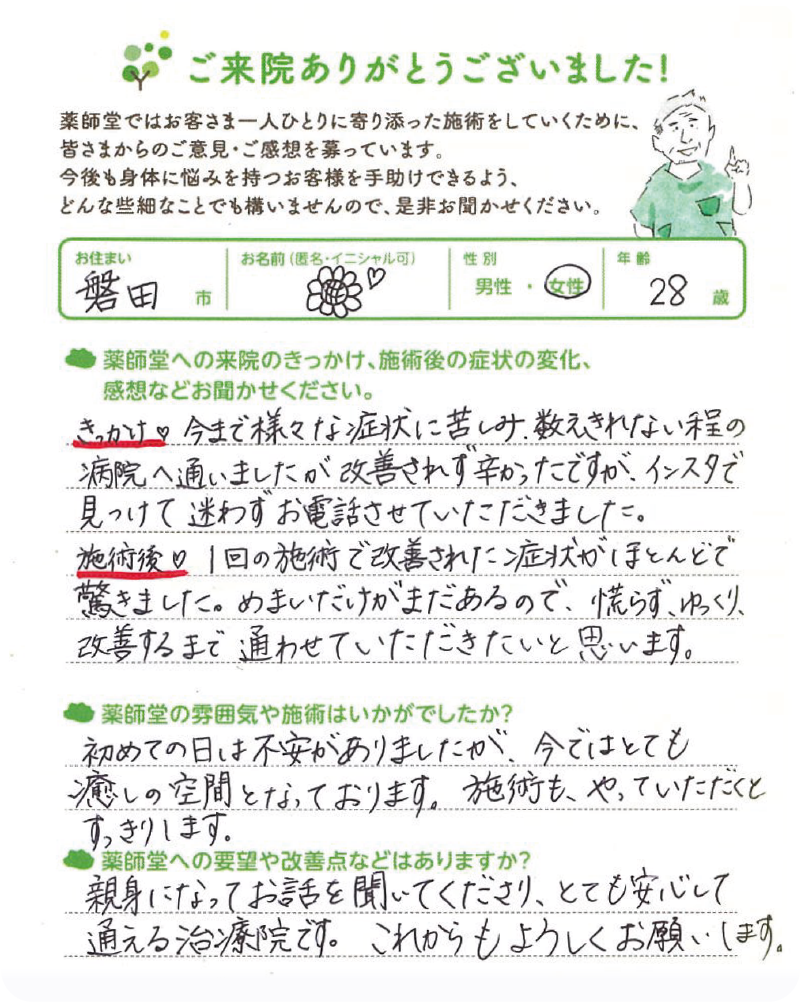 ご来院ありがとうございました!
薬師堂ではお客さま一人ひとりに寄り添った施術をしていくために、
皆さまからのご意見・ご感想を募っています。
今後も身体に悩みを持つお客様を手助けできるよう、
どんな些細なことでも構いませんので、是非お聞かせください。
お住まい お名前(匿名・イニシャル可) 性別 年齢
磐田 市 男性・女性 28 歳
薬師堂への来院のきっかけ、施術後の症状の変化、
感想などお聞かせください。
きっかけ♡ 今まで様々な症状に苦しみ、数えきれない程の
病院へ通いましたが改善されず辛かったですが、インスタで
見つけて迷わずお電話させていただきました。
施術後♡ 1回の施術で改善された症状がほとんどで
驚きました。めまいだけがまだあるので、慌らず、ゆっくり、
改善するまで通わせていただきたいと思います。
薬師堂の雰囲気や施術はいかがでしたか?
初めての日は不安がありましたが、今ではとても
癒しの空間となっております。施術も、やっていただくと
すっきりします。
薬師堂への要望や改善点などはありますか?
親身になってお話を聞いてくださり、とても安心して
通える治療院です。これからもよろしくお願いします。